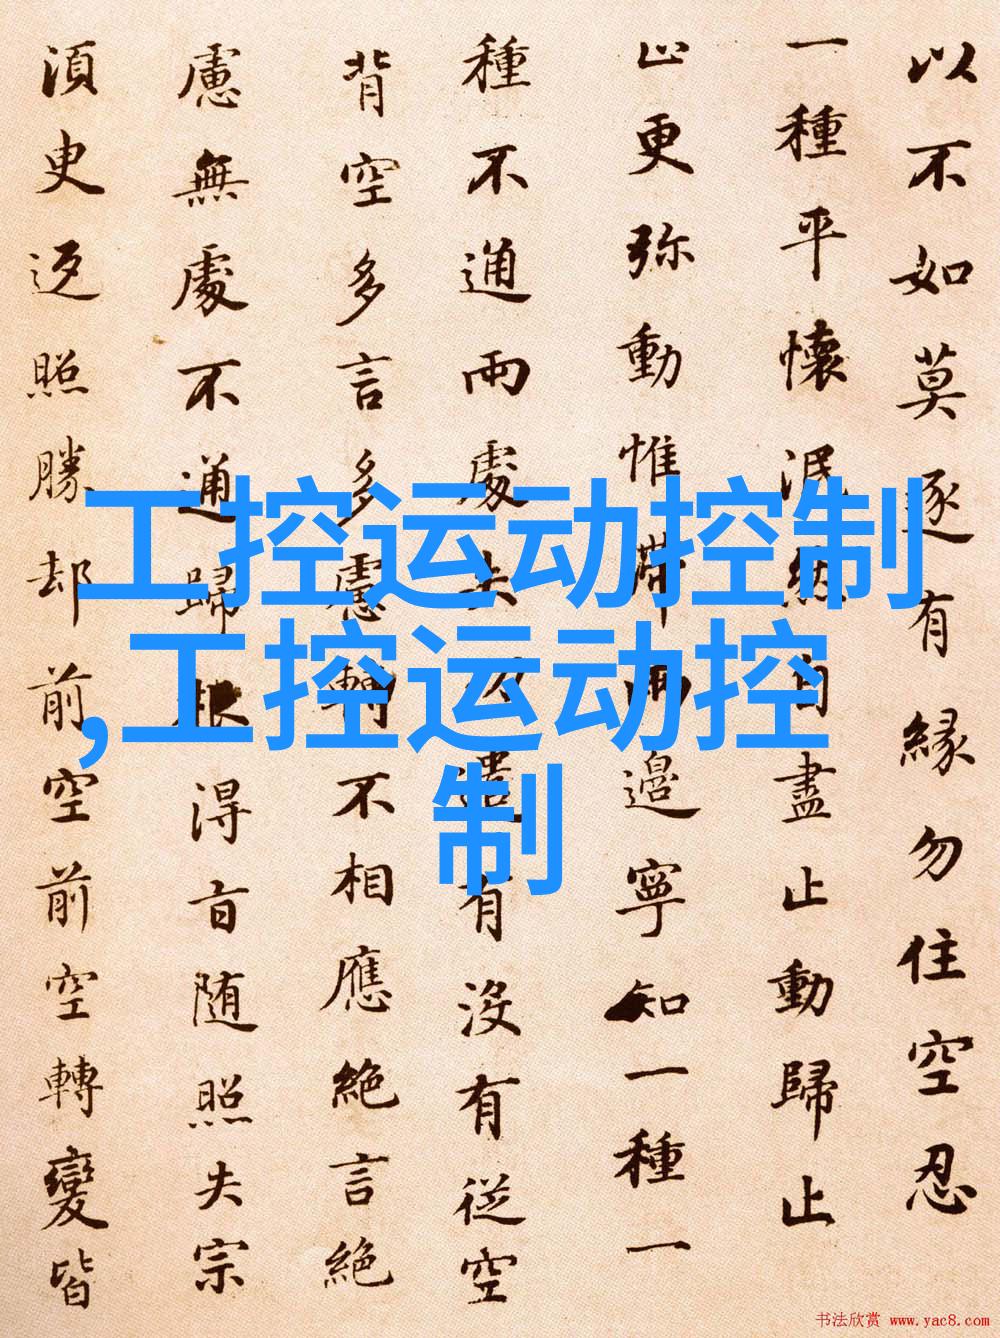 以不如莫逐有緣勿住空忍
一種平懷泯然自盡止動歸止
止更弥動惟滞兩邊寧知一種一
種不通兩處失遣有没有従空
背空多言多慮轉不相應絶言絶
慮無處不通歸根得旨随照失宗
須臾返照勝却前空前空轉變皆
工控运动控制
,工控运动控
制
书法欣赏 www.yac8.com